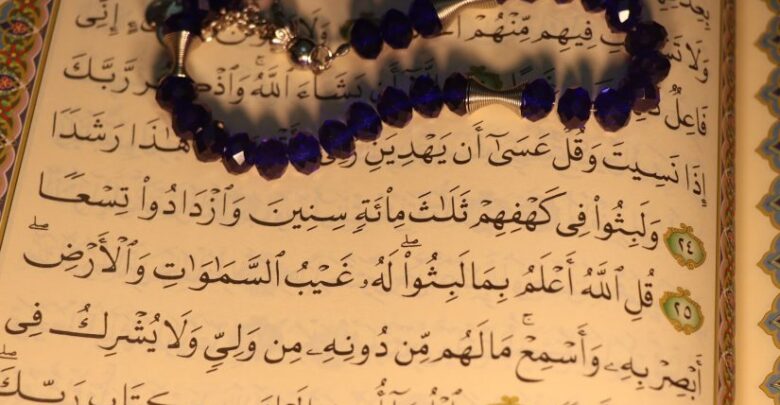 وَلَا فِيهِم مِّنْهُمْ إِنِّى
فَاعِلٌ أَن يَشَآءَ ٱللَّهُ وَٱذْكُر رَّبَّكَ
إِذَا نَسِيتَ وَقُلْ عَسَىٰٓ أَن يَهْدِيَنِ رَبِّى هَٰذَا رَشَدًا
٢٤ وَلَبِثُوا۟ فِى كَهْفِهِمْ ثَلَٰثَ مِا۟ئَةٍ سِنِينَ وَٱزْدَادُوا۟ تِسْعًا
٢٥ قُلِ ٱللَّهُ أَعْلَمُ بِمَا لَبِثُوا۟ۖ لَهُۥ غَيْبُ ٱلسَّمَٰوَٰتِ وَٱلْأَرْضِۖ
أَبْصِرْ بِهِۦ وَأَسْمِعْۚ مَا لَهُم مِّن دُونِهِۦ مِن وَلِىٍّ وَلَا يُشْرِكُ فِى
كِتَابِ رَبِّكَ